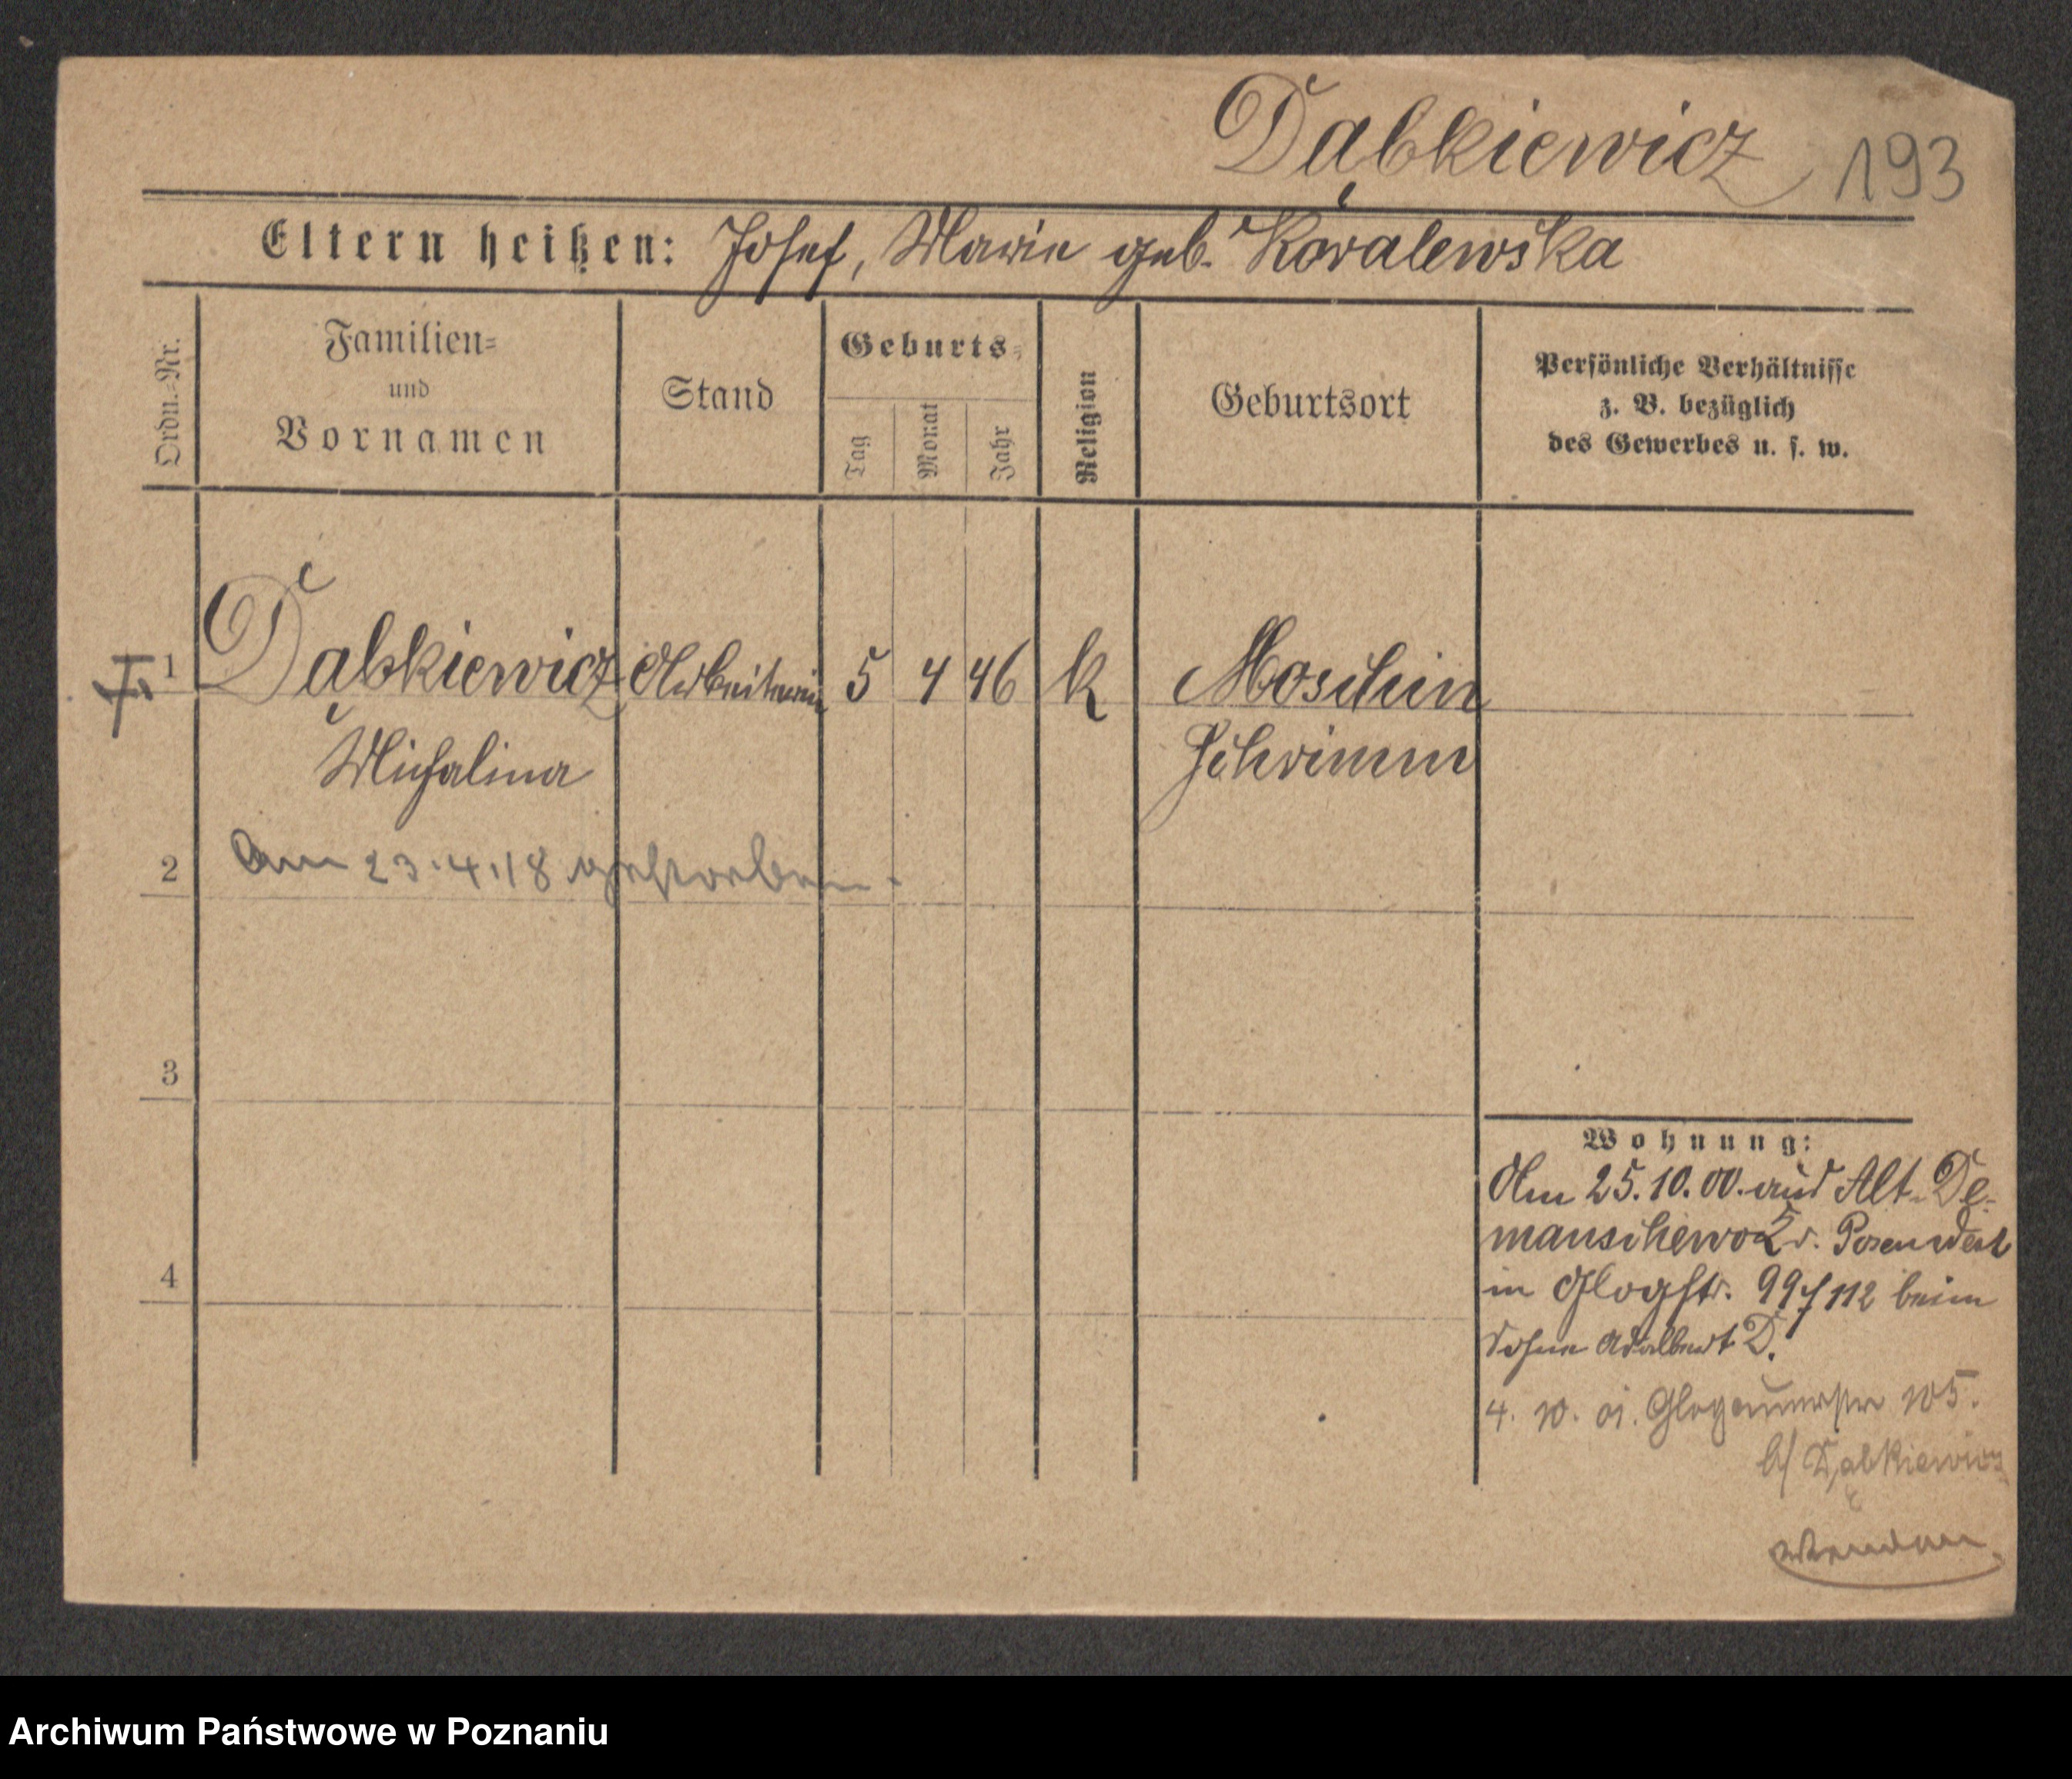 Dąbkiewicz 193
Eltern heißen: Josef, Marie geb. Kowalewska
Ordn.-Nr.
Familien-
und
Vornamen
Stand
Geburts-
Tag
Monat
Jahr
Religion
Geburtsort
Persönliche Verhältnisse
z. B. bezüglich
des Gewerbes u. s. w.
1 Dąbkiewicz Arbeiterin 5 4 46 k Moschin
Michalina Schrimm
2 Am 23.4.18 gestorben.
3
4
Wohnung:
Am 25.10.00. aus Alt-De-
manschewo Posen West
in Glogstr. 99/112 beim
Sohne Adalbert D.
4. 10. 01. Glogauerstr 105.
b/ Dąbkiewicz
Archiwum Państwowe w Poznaniu